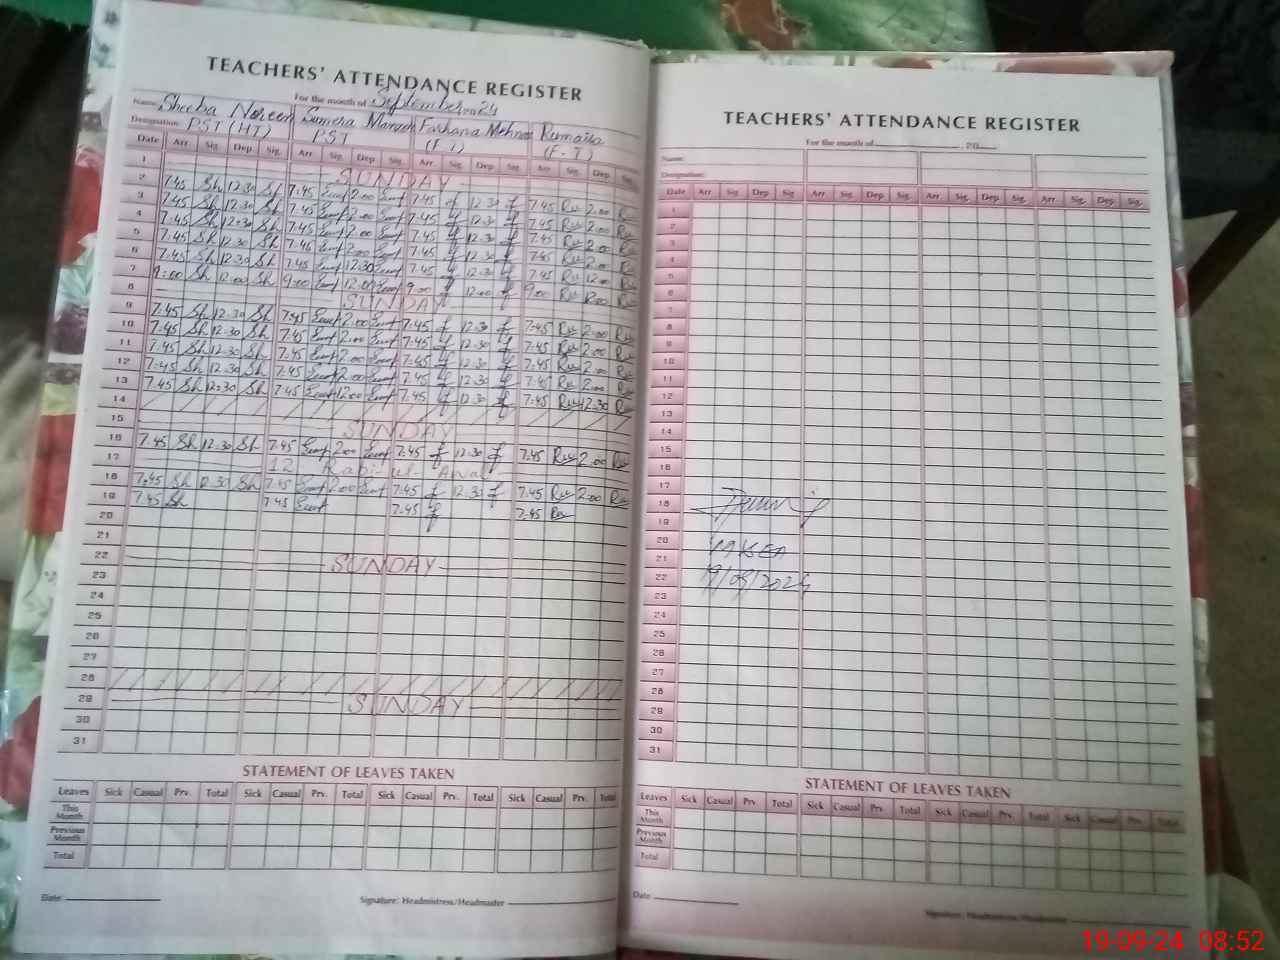 TEACHERS' ATTENDANCE REGISTER
For the month of September 2024
Name Sheeba Noreen Sumera Manzoor Farhana Mehnaz Rumaisa
Designation: PST (HT) PST (F.T) (F.T)
Date Arr Sig. Dep Sig. Arr Sig. Dep Sig. Arr. Sig. Dep Sig. Arr Sig. Dep. Sig.
1 SUNDAY
2 7.45 Sh 12.30 Sh 7.45 2.00 7.45 f 12.30 f 7.45 2.00
3 7.45 Sh 12.30 Sh 7.45 2.00 7.45 12.30 7.45 2.00
4 7.45 Sh 12.30 Sh 7.45 2.00 7.45 12.30 7.45 2.00
5 7.45 Sh 12.30 Sh 7.45 2.00 7.45 12.30 7.45 2.00
6 7.45 Sh 12.30 Sh 7.45 12.30 7.45 12.30 7.45 12.00
7 9:00 Sh 12.00 Sh 9.00 12.00 9.00 12.00 f 9.00 12.00
8 SUNDAY
9 7.45 Sh 12.30 Sh 7.45 2.00 7.45 f 12.30 f 7.45 2.00
10 7.45 Sh 12.30 Sh 7.45 2.00 7.45 12.30 7.45 2.00
11 7.45 Sh 12.30 Sh 7.45 2.00 7.45 12.30 7.45 2.00
12 7.45 Sh 12.30 Sh 7.45 2.00 7.45 12.30 7.45 2.00
13 7.45 Sh 12.30 Sh 7.45 12.00 7.45 12.30 7.45 12.30
14
15 SUNDAY
16 7.45 Sh 12.30 Sh 7.45 2.00 7.45 f 12.30 f 7.45 2.00
17 12 Rabi-ul-Awal
18 7.45 Sh 12.30 Sh 7.45 2.00 7.45 f 12.30 f 7.45 2.00
19 7.45 Sh 7.45 7.45 f 7.45
20
21
22 SUNDAY
23
24
25
26
27
28
29 SUNDAY
30
31
STATEMENT OF LEAVES TAKEN
Leaves Sick Casual Prv. Total Sick Casual Prv. Total Sick Casual Prv. Total Sick Casual Prv. Total
This Month
Previous Month
Total
Date Signature: Headmistress/Headmaster
TEACHERS' ATTENDANCE REGISTER
For the month of , 20
Name:
Designation:
Date Arr Sig. Dep Sig. Arr. Sig. Dep. Sig. Arr. Sig. Dep. Sig. Arr. Sig. Dep. Sig.
1
2
3
4
5
6
7
8
9
10
11
12
13
14
15
16
17
18
19
20
21
22
23
24
25
26
27
28
29
30
31
19/09/2024
STATEMENT OF LEAVES TAKEN
Leaves Sick Casual Prv Total Sick Casual Prv. Total Sick Casual Prv. Total Sick Casual Prv. Total
This Month
Previous Month
Total
Date Signature: Headmistress/Headmaster
19-09-24 08:52